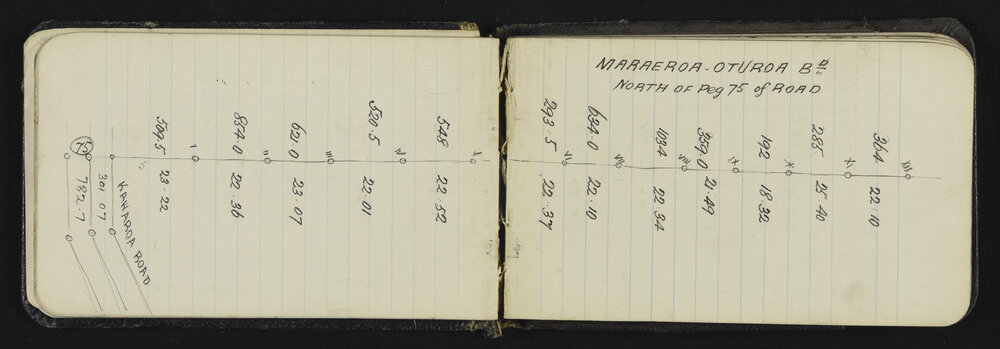 MARAEROA-OTUROA Bᴰ
NORTH OF Peg 75 of ROAD
509.5 23-22
I
854.0 22.36
II
621.0 23.07
III
520.5 22.01
IV
548 22.52
V
293.5 22.37
VI
634.0 22.10
VII
1034 22.34
VIII
359.0 21.49
IX
192 18.32
X
285 25.40
364 22.10
XII
782.7
301.07
KAWAROA ROAD